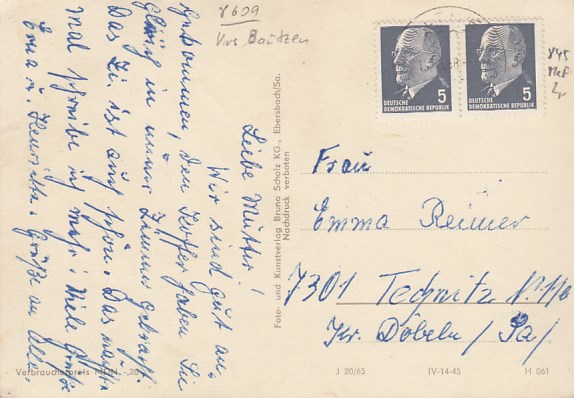 Liebe Mutter!
Wir sind gut an-
gekommen, den Koffer haben Sie
gleich in unser Zimmer gebracht.
Das Zi. ist ganz schön. Das nächste
mal schreibe ich mehr. Viele Grüße
Erna u. Henriette. Grüße an Alle.
8609
Kirs Bautzen
5
DEUTSCHE
DEMOKRATISCHE REPUBLIK
5
DEUTSCHE
DEMOKRATISCHE REPUBLIK
Foto- und Kunstverlag Bruno Scholz KG., Ebersbach/Sa.
Nachdruck verboten
Frau
Emma Reimer
7301 Technitz
Kr. Döbeln / Sa/
Verbraucherpreis MDN -,20
J 20/65
IV-14-45
H 061